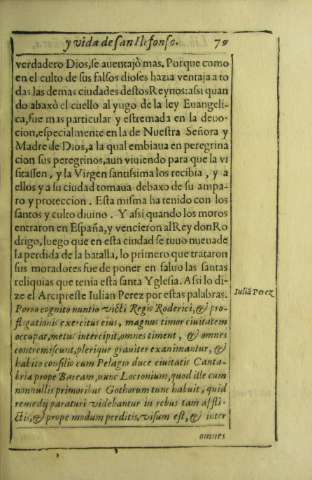 y vida de san Ilefonso. 79
verdadero Dios, se auentajò mas. Porque como
en el culto de sus falsos dioses hazia ventaja a to
das las demas ciudades destos Reynos: assi quan
do abaxò el cuello al yugo de la ley Euangeli-
ca, fue mas particular y estremada en la deuo-
cion, especialmente en la de Nuestra Señora y
Madre de Dios, a la qual embiaua en peregrina
cion sus peregrinos, aun viuiendo para que la vi
sitassen, y la Virgen santissima los recibia, y a
ellos y a su ciudad tomaua debaxo de su ampa-
ro y proteccion. Esta misma ha tenido con los
santos y culto diuino. Y assi quando los moros
entraron en España, y vencieron al Rey don Ro
drigo, luego que en esta ciudad se tuuo nueua de
la perdida de la batalla, lo primero que trataron
sus moradores fue de poner en saluo las santas
reliquias que tenia esta santa Yglesia. Assi lo di-
ze el Arcipreste Iulian Perez por estas palabras.
Iuliã Perez
Porro cognito nuntio victi Regis Roderici, & pro-
fligationis exercitus eius, magnus timor ciuitatem
occupat, metus intercipit, omnes timent, & omnes
contremiscunt, plerique grauiter exanimantur, &
habito consilio cum Pelagio duce ciuitatis Canta-
briæ prope Baream, nunc Locronium, quod ille cum
nonnullis primoribus Gothorum tunc habuit, quid
remedij paraturi videbantur in rebus tam affli-
ctis, & prope modum perditis, visum est, & inter
omnes